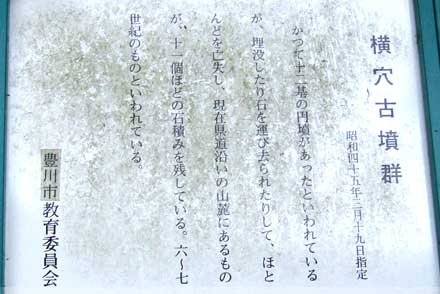 横穴古墳群
昭和四十五年三月十九日指定
かつて十二基の円墳があったといわれている
が、埋没したり石を運び去られたりして、ほと
んどを亡失し、現在県道沿いの山麓にあるもの
が、十一個ほどの石積みを残している。六〜七
世紀のものといわれている。
豊川市教育委員会